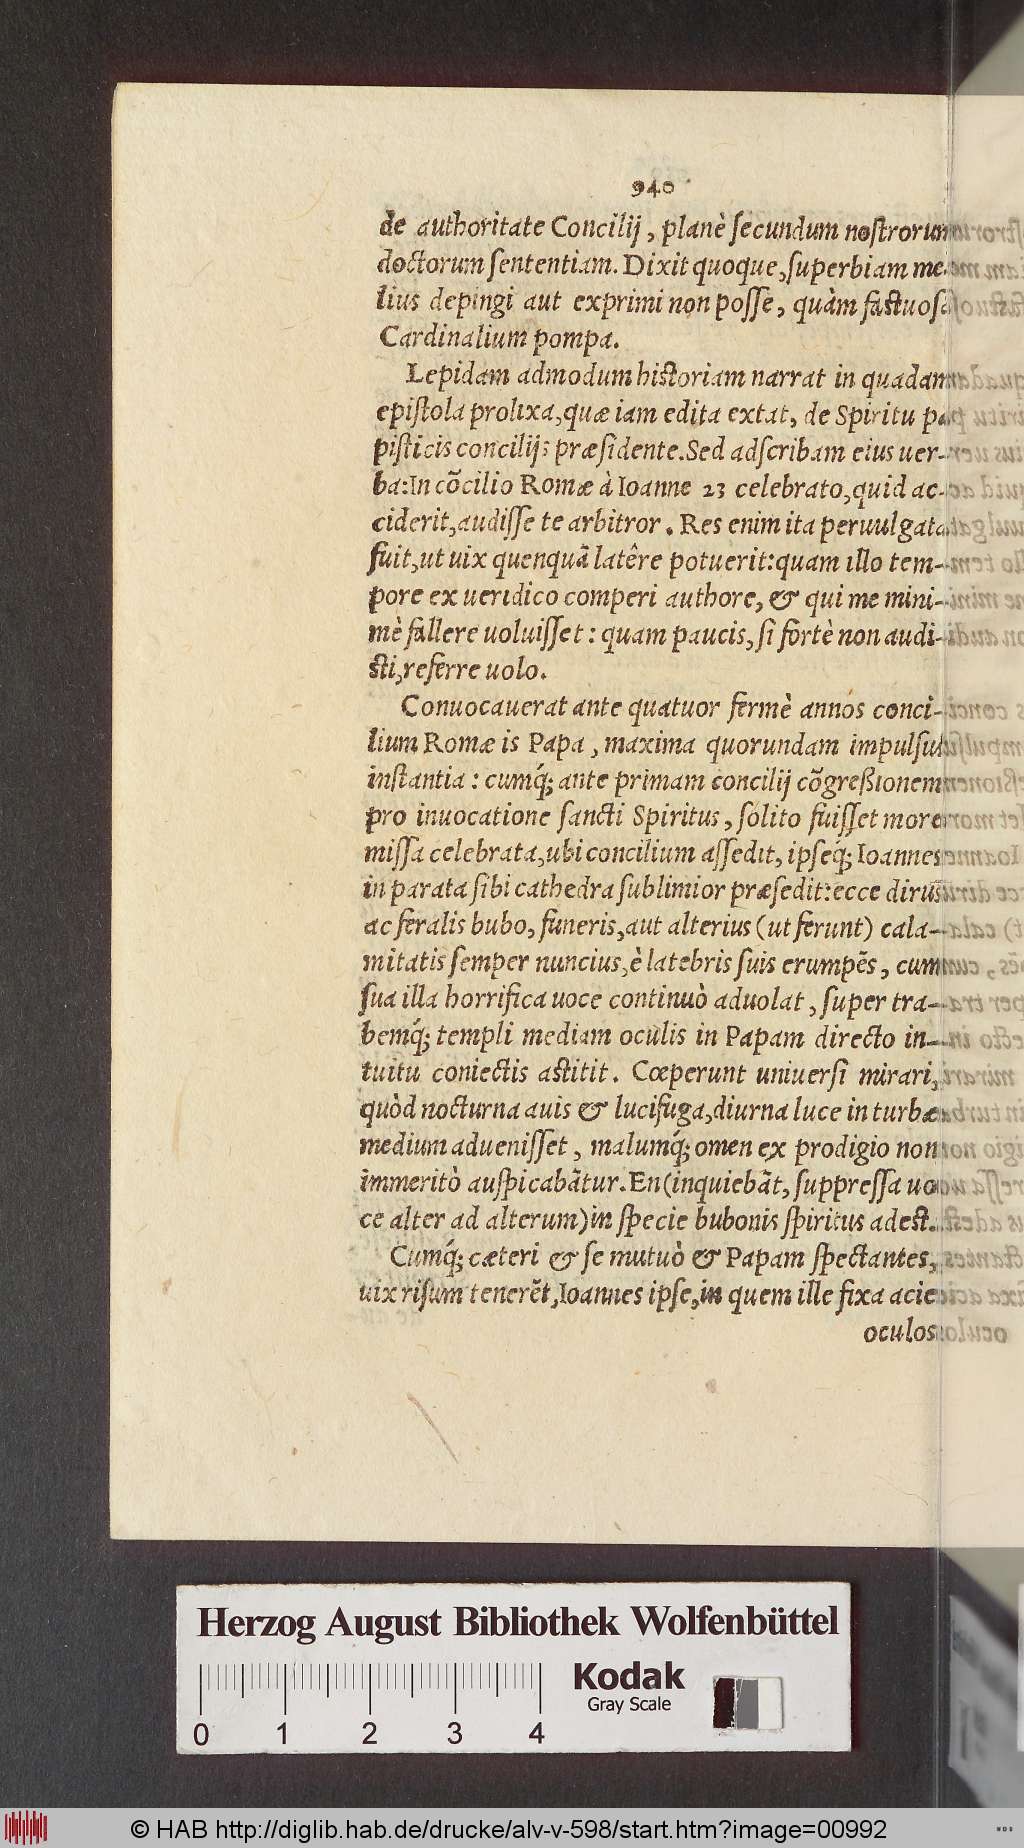 940
de authoritate Concilij, planè ſecundum noſtrorum
doctorum ſententiam. Dixit quoque, ſuperbiam me-
lius depingi aut exprimi non poſſe, quàm faſtuoſa
Cardinalium pompa.
Lepidam admodum hiſtoriam narrat in quadam
epiſtola prolixa, quæ iam edita extat, de Spiritu pa-
piſticis concilijs præſidente. Sed adſcribam eius uer-
ba: In cõcilio Romæ à Ioanne 23 celebrato, quid ac-
ciderit, audiſſe te arbitror. Res enim ita peruulgata
fuit, ut uix quenquã latêre potuerit: quam illo tem-
pore ex ueridico comperi authore, & qui me mini-
mè fallere uoluiſſet: quam paucis, ſi fortè non audi-
ſti, referre uolo.
Conuocauerat ante quatuor fermè annos conci-
lium Romæ is Papa, maxima quorundam impulſus
inſtantia: cumq́; ante primam concilij cõgreßionem
pro inuocatione ſancti Spiritus, ſolito fuiſſet more
miſſa celebrata, ubi concilium aſſedit, ipſeq́; Ioannes
in parata ſibi cathedra ſublimior præſedit: ecce dirus
ac feralis bubo, funeris, aut alterius (ut ferunt) cala-
mitatis ſemper nuncius, è latebris ſuis erumpẽs, cum
ſua illa horrifica uoce continuò aduolat, ſuper tra-
bemq́; templi mediam oculis in Papam directo in-
tuitu coniectis aſtitit. Cœperunt uniuerſi mirari,
quòd nocturna auis & lucifuga, diurna luce in turbæ
medium adueniſſet, malumq́; omen ex prodigio non
immeritò auſpicabãtur. En (inquiebãt, ſuppreſſa uo
ce alter ad alterum) in ſpecie bubonis ſpiritus adeſt.
Cumq́; cæteri & ſe mutuò & Papam ſpectantes,
uix riſum tenerẽt, Ioannes ipſe, in quem ille fixa acie
oculos
Herzog August Bibliothek Wolfenbüttel
Kodak
Gray Scale
0 1 2 3 4
© HAB http://diglib.hab.de/drucke/alv-v-598/start.htm?image=00992